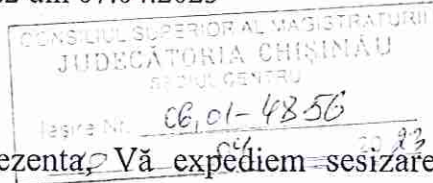 din 07.04.2023
CONSILIUL SUPERIOR AL MAGISTRATURII
JUDECĂTORIA CHIȘINĂU
SEDIUL CENTRU
Ieșire Nr. 06,01-4856
04 2023
Vă expediem sesizare